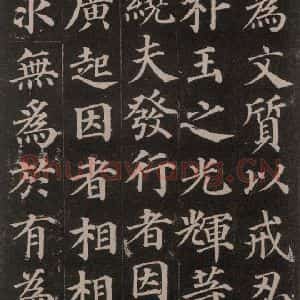 為文質以戒忍
朴玉之光輝等
繞夫發行者因
廣起因者相相
求無為於有為
Shufawang.CN